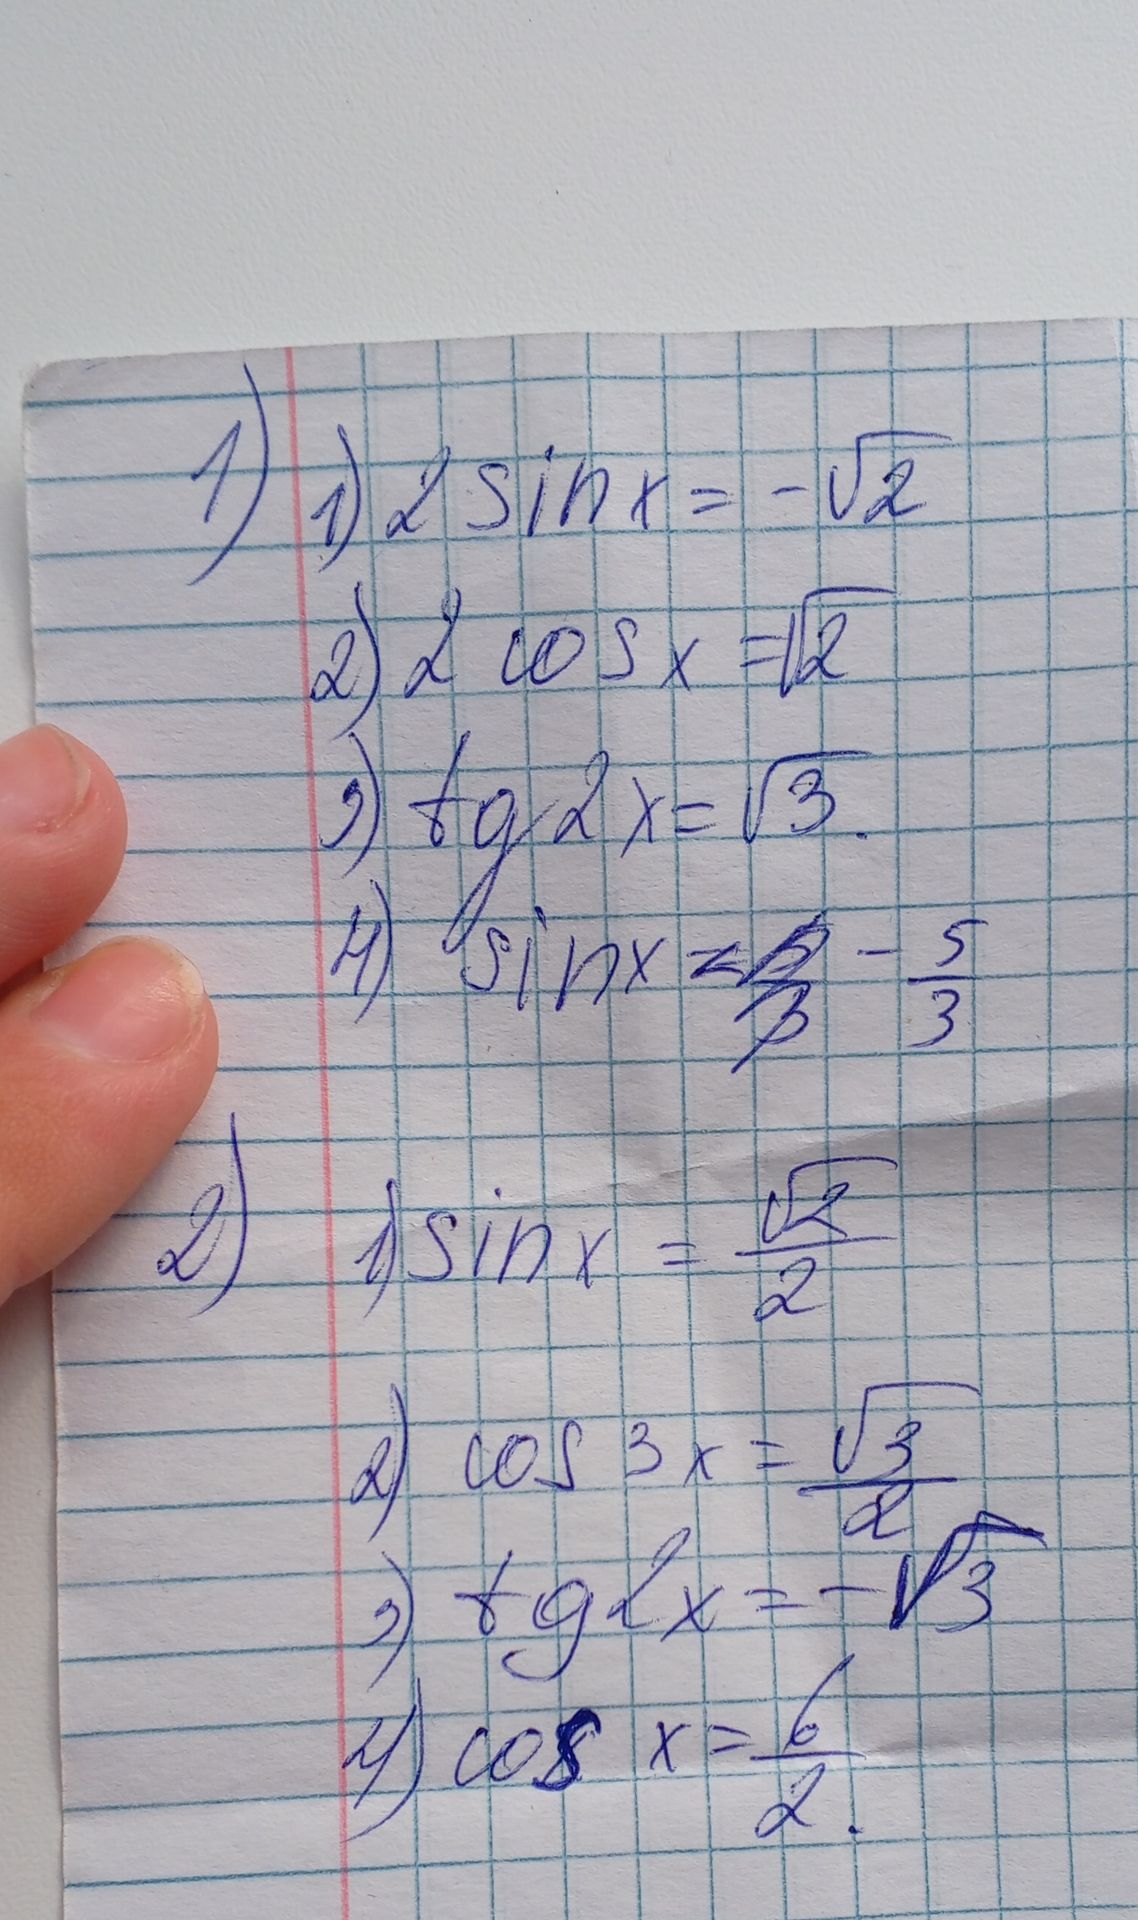 1) 1) 2 sin x = -√2
2) 2 cos x = √2
3) tg 2x = √3.
4) sin x = - 5/3
2) 1) sin x = √2/2
2) cos 3x = √3/2
3) tg 2x = -√3
4) cos x = 6/2.